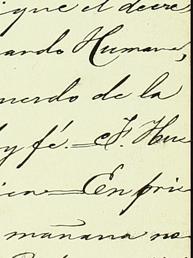 que el decre
ando Humana,
uerdo de la
y fé.=F. Hue
ica=En pri
mañana no